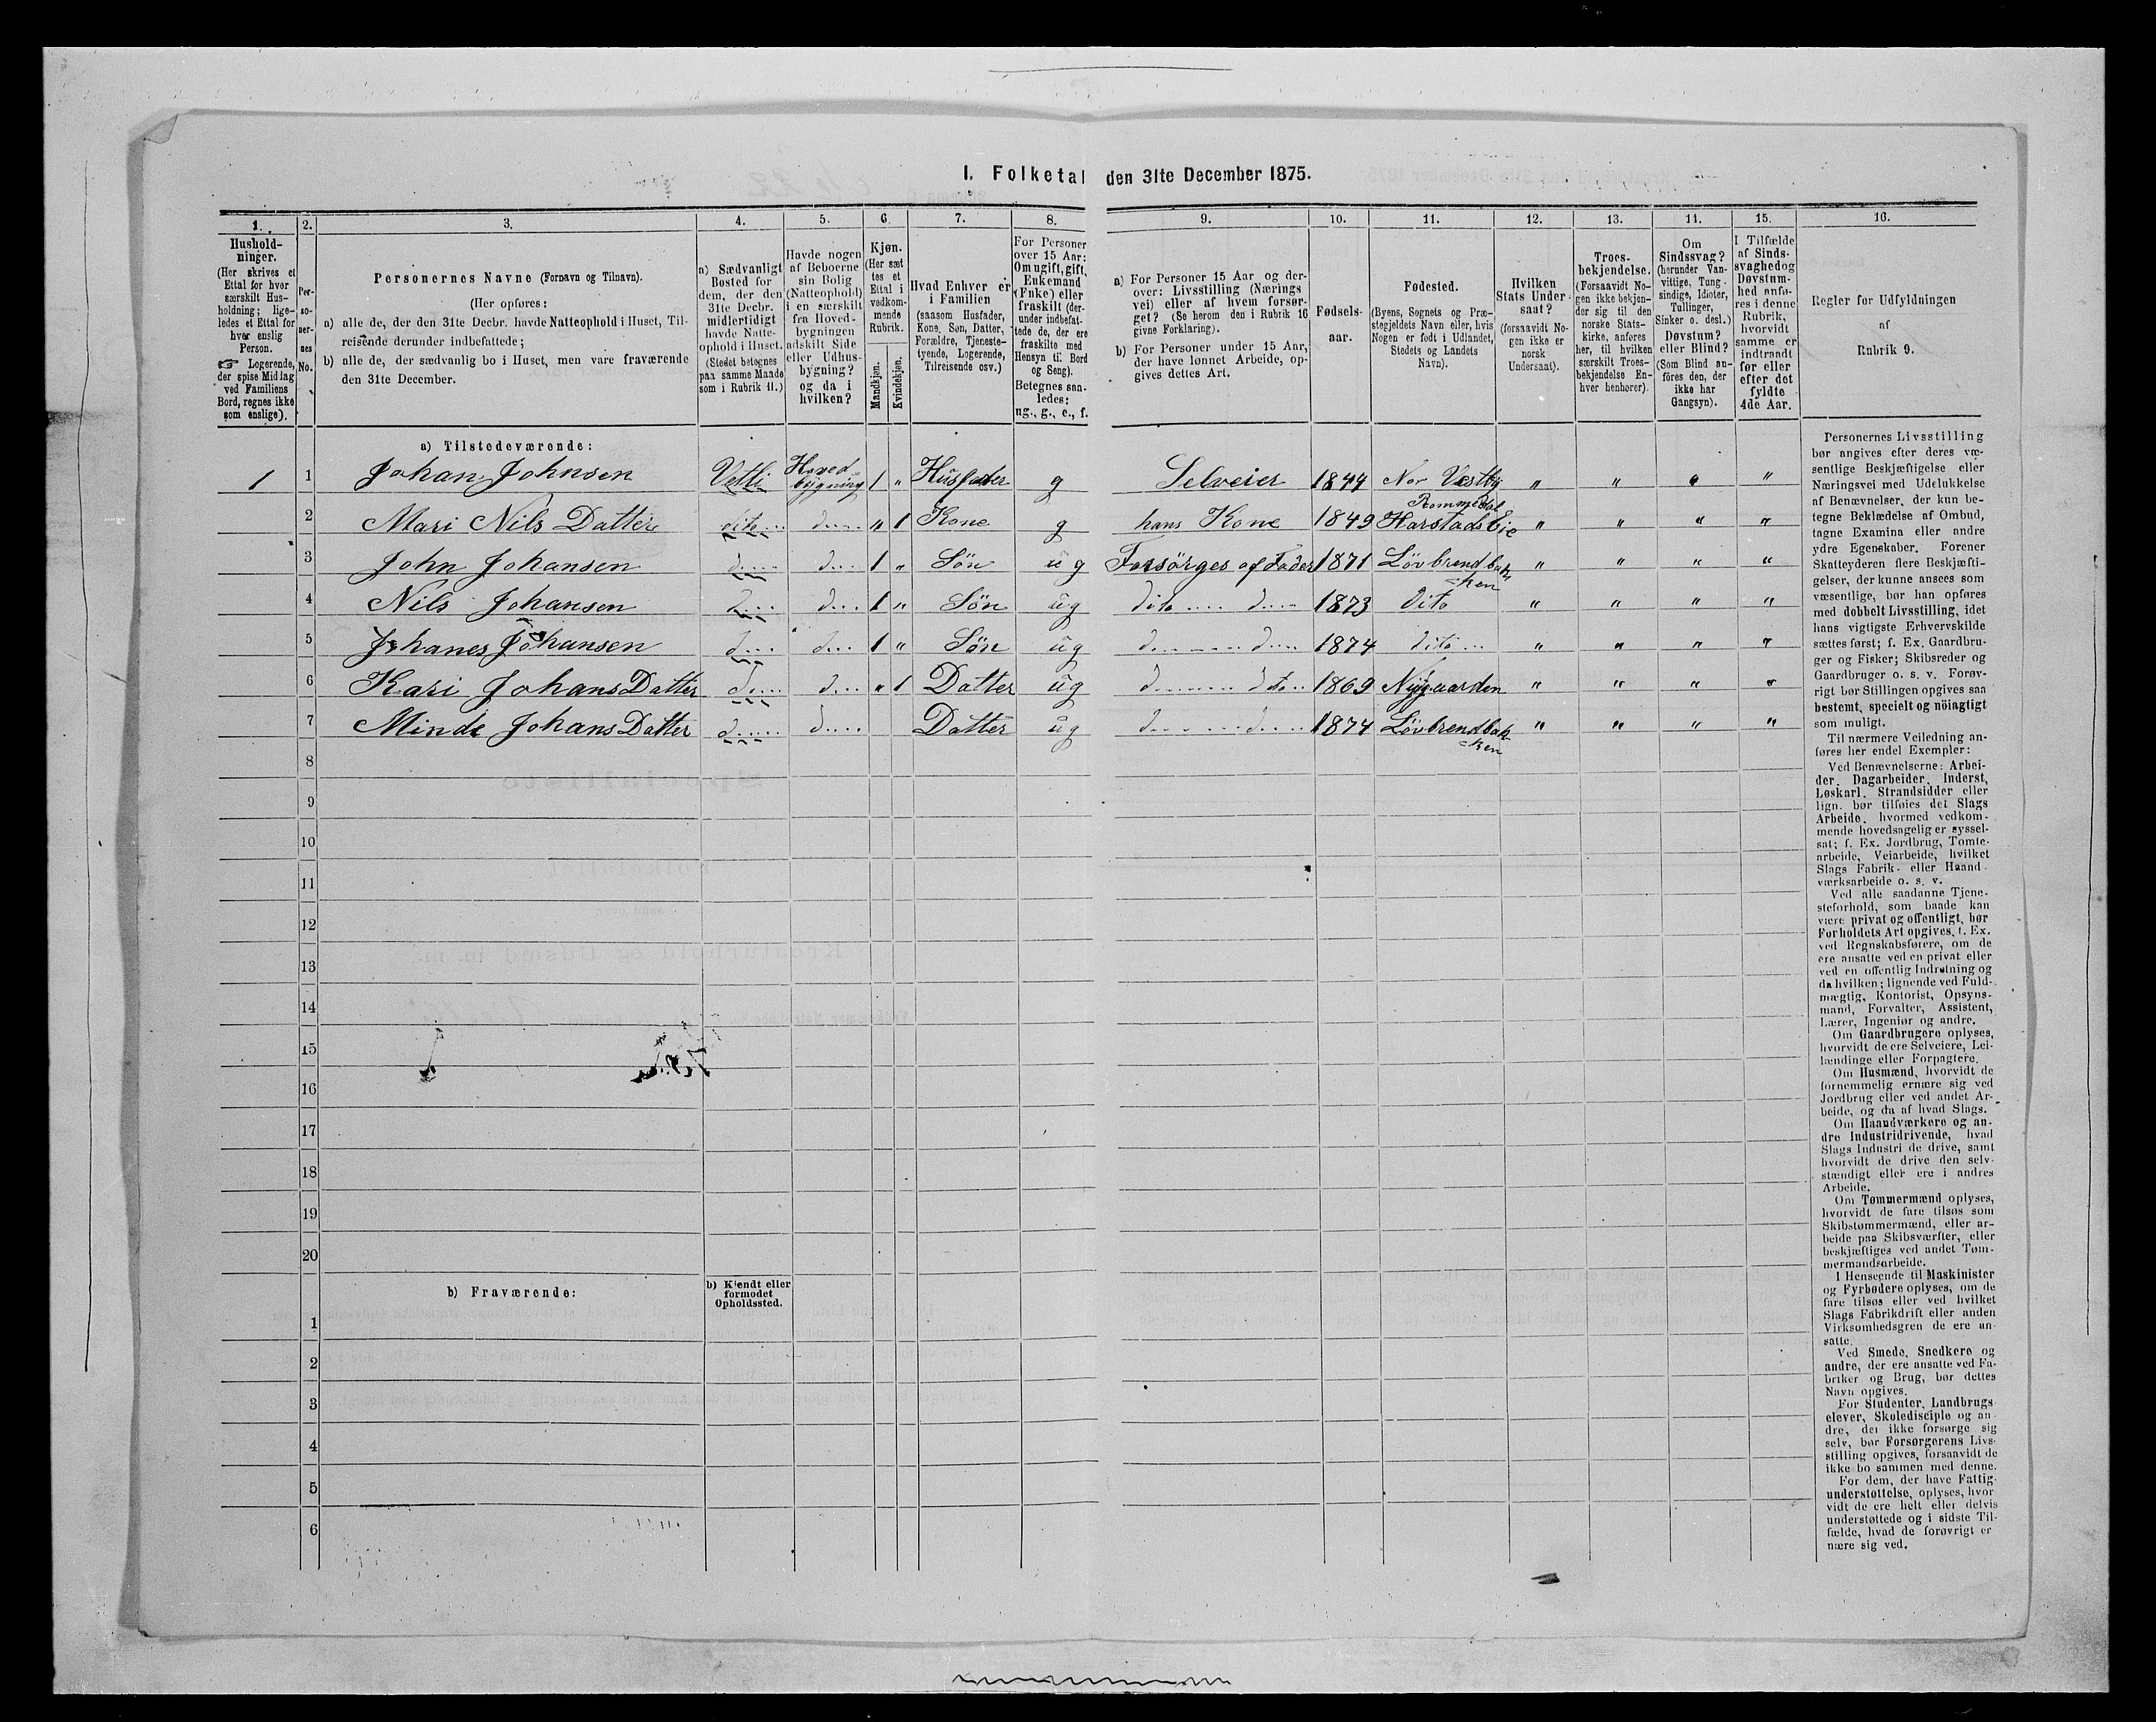 I. Folketal den 31te December 1875.
1. 2. 3. 4. 5. 6. 7. 8. 9. 10. 11. 12. 13. 14. 15. 16.
Hushold-
ninger.
(Her skrives et
Ettal for hver
særskilt Hus-
holdning; lige-
ledes et Ettal for
hver enslig
Person.
☞ Logerende,
der spise Middag
ved Familiens
Bord, regnes ikke
som enslige).
Per-
so-
ner-
nes
No.
Personernes Navne (Fornavn og Tilnavn).
(Her opføres:
a) alle de, der den 31te Decbr. havde Natteophold i Huset, Til-
reisende derunder indbefattede;
b) alle de, der sædvanlig bo i Huset, men vare fraværende
den 31te December.
a) Sædvanligt
Bosted for
dem, der den
31te Decbr.
midlertidigt
havde Natte-
ophold i Huset.
(Stedet betegnes
paa samme Maade
som i Rubrik 11.)
Havde nogen
af Beboerne
sin Bolig
(Natteophold)
i en særskilt
fra Hoved-
bygningen
adskilt Side
eller Udhus-
bygning?
og da i
hvilken?
Kjøn.
(Her sæt
tes et
Ettal i
vedkom-
mende
Rubrik.
Mandkjøn.
Kvindekjøn.
Hvad Enhver er
i Familien
(saasom Husfader,
Kone, Søn, Datter,
Forældre, Tjeneste-
tyende, Logerende,
Tilreisende osv.)
For Personer
over 15 Aar:
Om ugift, gift,
Enkemand
(Enke) eller
fraskilt (der-
under indbefat-
tede de, der ere
fraskilte med
Hensyn til Bord
og Seng).
Betegnes saa-
ledes:
ug., g., e., f.
a) For Personer 15 Aar og der-
over: Livsstilling (Nærings
vei) eller af hvem forsør-
get? (Se herom den i Rubrik 16
givne Forklaring).
b) For Personer under 15 Aar,
der have lønnet Arbeide, op-
gives dettes Art.
Fødsels-
aar.
Fødested.
(Byens, Sognets og Præ-
stegjeldets Navn eller, hvis
Nogen er født i Udlandet,
Stedets og Landets
Navn).
Hvilken
Stats Under-
saat?
(forsaavidt No-
gen ikke er
norsk
Undersaat).
Troes-
bekjendelse.
(Forsaavidt No-
gen ikke bekjen-
der sig til den
norske Stats-
kirke, anføres
her, til hvilken
særskilt Troes-
bekjendelse En-
hver henhører).
Om
Sindssvag?
(herunder Van-
vittige, Tung-
sindige, Idioter,
Tullinger,
Sinker o. desl.)
Døvstum?
eller Blind?
(Som Blind an-
føres den, der
ikke har
Gangsyn).
I Tilfælde
af Sinds-
svaghed og
Døvstum-
hed anfø-
res i denne
Rubrik,
hvorvidt
samme er
indtraadt
før eller
efter det
fyldte
4de Aar.
Regler for Udfyldningen
af
Rubrik 9.
a) Tilstedeværende:
1 1 Johan Johnsen Vetli Hoved-bygning 1 " Husfader g Selveier 1844 Nor Vestby " " " "
2 Mari Nils Datter dito d " 1 Kone g hans Kone 1849 Rommedal Harstads Eie " " " "
3 John Johansen d d 1 " Sön ug Forsörges af Fader 1871 Lövbrendbakken " " " "
4 Nils Johansen d d 1 " Sön ug dito d 1873 dito " " " "
5 Johanes Johansen d d 1 " Sön ug d d 1874 dito " " " "
6 Kari Johans Datter d d " 1 Datter ug d dito 1869 Nygaarden " " " "
7 Minde Johans Datter d d Datter ug d d 1874 Lövbrendbakken " " " "
8
9
10
11
12
13
14
15
16
17
18
19
20
b) Fraværende:
b) Kjendt eller
formodet
Opholdssted.
1
2
3
4
5
6
Personernes Livsstilling
bør angives efter deres væ-
sentlige Beskjæftigelse eller
Næringsvei med Udelukkelse
af Benævnelser, der kun be-
tegne Beklædelse af Ombud,
tagne Examina eller andre
ydre Egenskaber. Forener
Skatteyderen flere Beskjæfti-
gelser, der kunne ansees som
væsentlige, bør han opføres
med dobbelt Livsstilling, idet
hans vigtigste Erhvervskilde
sættes først; f. Ex. Gaardbru-
ger og Fisker; Skibsreder og
Gaardbruger o. s. v. Forøv-
rigt bør Stillingen opgives saa
bestemt, specielt og nöiagtigt
som muligt.
Til nærmere Veiledning an-
føres her endel Exempler:
Ved Benævnelserne: Arbei-
der, Dagarbeider, Inderst,
Løskarl, Strandsidder eller
lign. bør tilføies det Slags
Arbeide, hvormed vedkom-
mende hovedsagelig er syssel-
sat; f. Ex. Jordbrug, Tomte-
arbeide, Veiarbeide, hvilket
Slags Fabrik- eller Haand-
værksarbeide o. s. v.
Ved alle saadanne Tjene-
steforhold, som baade kan
være privat og offentligt, bør
Forholdets Art opgives, f. Ex.
ved Regnskabsførere, om de
ere ansatte ved en privat eller
ved en offentlig Indretning og
da hvilken; lignende ved Fuld-
mægtig, Kontorist, Opsyns-
mand, Forvalter, Assistent,
Lærer, Ingeniør og andre.
Om Gaardbrugere oplyses,
hvorvidt de ere Selveiere, Lei-
lændinge eller Forpagtere.
Om Husmænd, hvorvidt de
fornemmelig ernære sig ved
Jordbrug eller ved andet Ar-
beide, og da af hvad Slags.
Om Haandværkere og an-
dre Industridrivende, hvad
Slags Industri de drive, samt
hvorvidt de drive den selv-
stændigt eller ere i andres
Arbeide.
Om Tømmermænd oplyses,
hvorvidt de fare tilsøs som
Skibstømmermænd, eller ar-
beide paa Skibsværfter, eller
beskjæftiges ved andet Tøm-
mermandsarbeide.
I Henseende til Maskinister
og Fyrbødere oplyses, om de
fare tilsøs eller ved hvilket
Slags Fabrikdrift eller anden
Virksomhedsgren de ere an-
satte.
Ved Smede, Snedkere og
andre, der ere ansatte ved Fa-
briker og Brug, bør dettes
Navn opgives.
For Studenter, Landbrugs-
elever, Skoledisciple og an-
dre, der ikke forsørge sig
selv, bør Forsørgerens Livs-
stilling opgives, forsaavidt de
ikke bo sammen med denne.
For dem, der have Fattig-
understøttelse, oplyses, hvor
vidt de ere helt eller delvis
understøttede og i sidste Til-
fælde, hvad de forøvrigt er
nære sig ved.